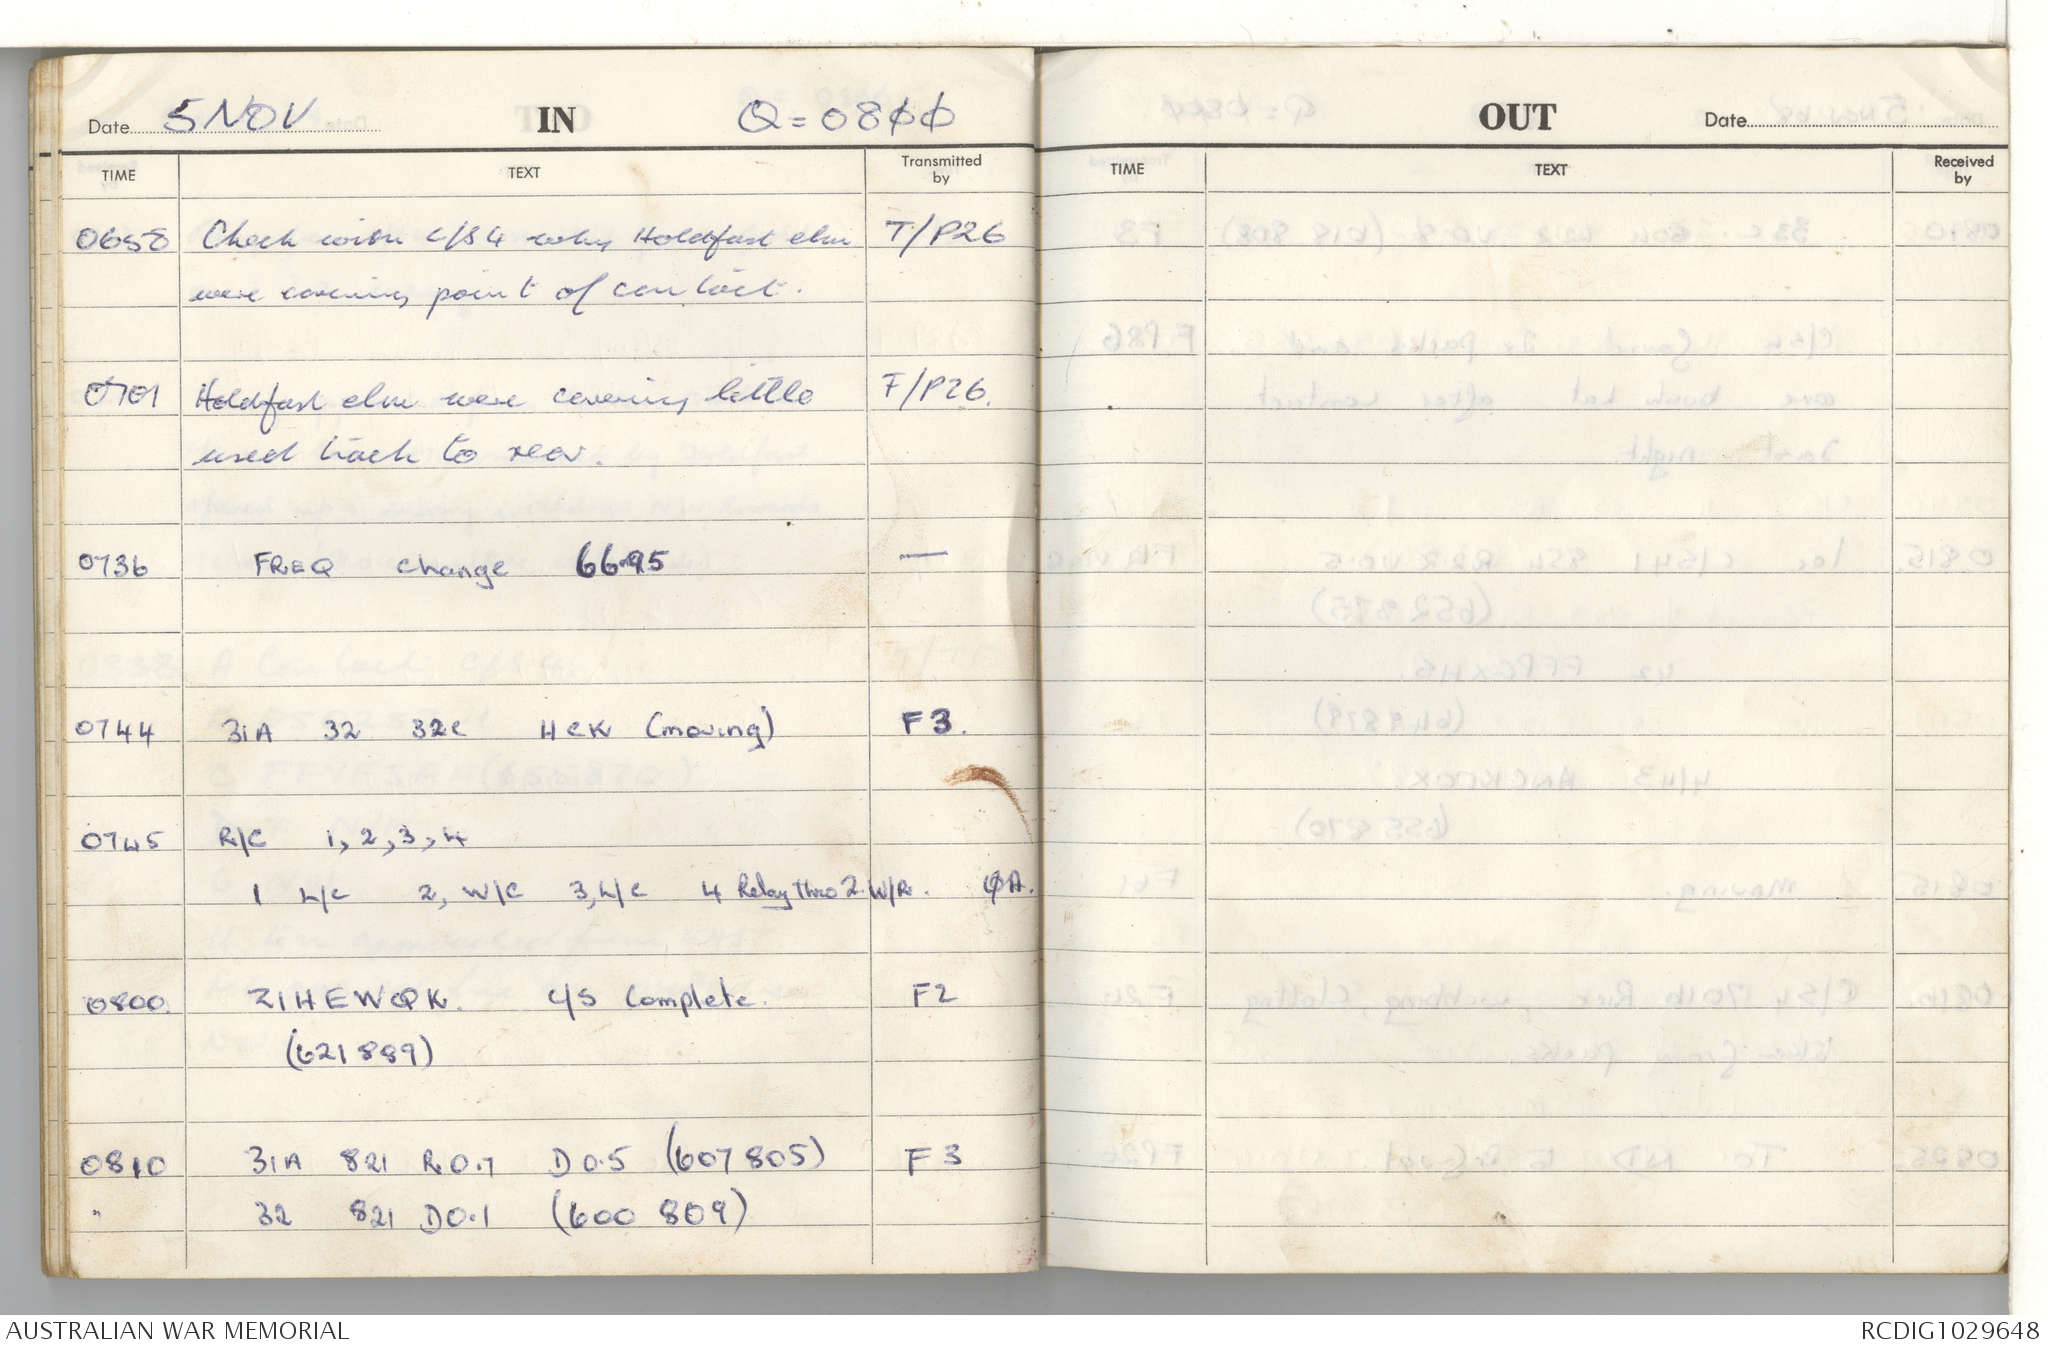 Date 5 NOV IN Q = 08ɸɸ
TIME TEXT Transmitted by
0658 Check with C/S 4 why Holdfast elm T/P26
were covering point of contact.
0701 Holdfast elm were covering little F/P26.
used track to rear.
0736 FREQ change 66.95 —
0744 31A 32 32C HCK (moving) F3.
0745 R/C 1, 2, 3, 4
1 L/C 2, W/C 3, L/C 4 Relay thro 2 W/R. ɸA.
0800. 21HEWQK. C/S Complete. F2
(621889)
0810 31A 821 R0.7 D0.5 (607805) F3
" 32 821 D0.1 (600 809)
OUT Date
TIME TEXT Received by
AUSTRALIAN WAR MEMORIAL
RCDIG1029648